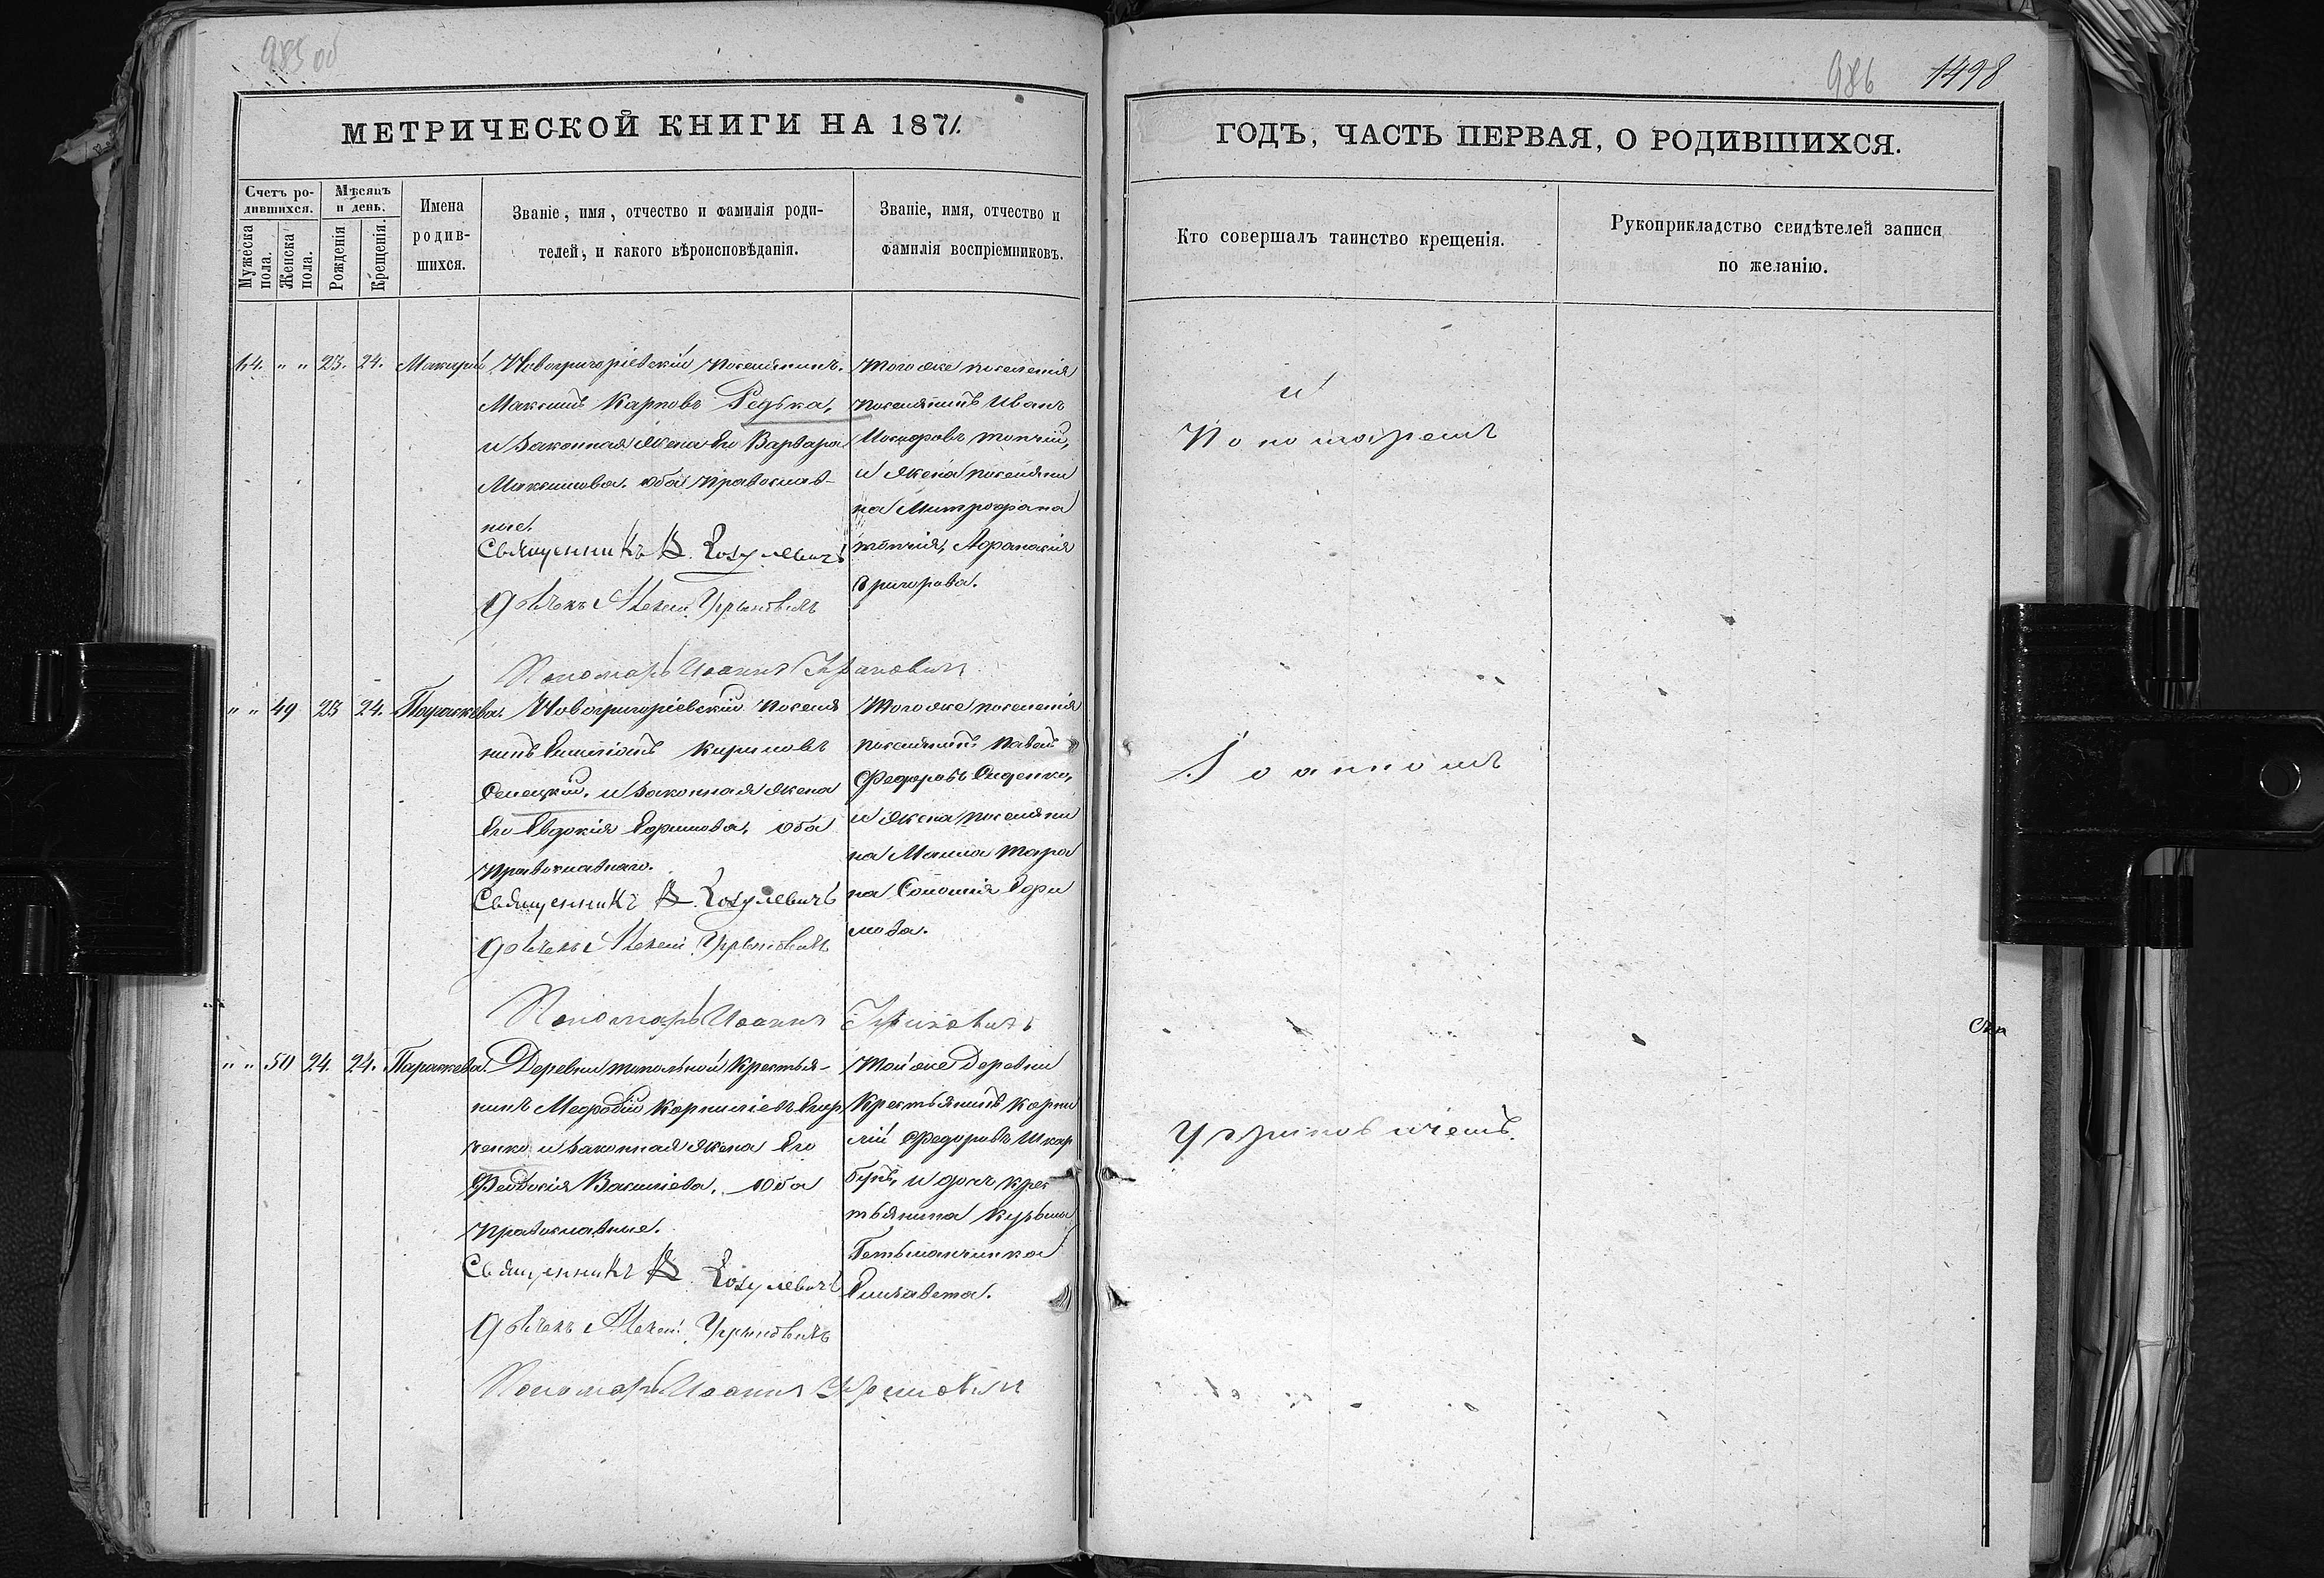 985 об
МЕТРИЧЕСКОЙ КНИГИ НА 1871.
Счетъ ро-
дившихся.
Мѣсяцъ
и день.
Мужеска
пола.
Женска
пола.
Рожденія
Крещенія.
Имена
родив-
шихся.
Званіе, имя, отчество и фамилія роди-
телей, и какого вѣроисповѣданія.
Званіе, имя, отчество и
фамилія воспріемниковъ.
64. " " 23. 24. Макарій
Новогригоріевскій поселянинъ.
Максимъ Карповъ Редька,
и законная жена его Варвара
Максимова. оба православ-
ные.
Священникъ В. Козулевичъ
Дьячекъ Алексій Угриновичъ
Пономарь Иоаннъ Угриновичъ
Того же поселенія
поселянинъ Иванъ
Никифоровъ Топчій,
и жена поселяни
на Митрофана
Топчія, Афанасія
Григорьева.
" " 49 23 24. Параскева.
Новогригоріевскій поселя
нинъ Филипъ Кириловъ
и законная жена
его Евдокія Ефимова, оба
православнаго.
Священникъ В. Козулевичъ
Дьячекъ Алексій Угриновичъ
Пономарь Иоаннъ Угриновичъ
Того же поселенія
поселянинъ Павелъ
Федоровъ Сиденко,
и жена поселяни
на Тара
на Соломія Ефи
мова.
" " 50 24. 24. Параскева.
Деревни Топольной крестья-
нинъ Мефодій Корниліевъ
ченко и законная жена его
Феодосія Василіева, оба
православные.
Священникъ В. Козулевичъ
Дьячекъ Алексій Угриновичъ
Пономарь Иоаннъ Угриновичъ
Той же деревни
крестьянинъ Корни
лій Федоровъ Шкар
бунъ, и дочь крес
тьянина Кузьмы
Гетьманчинка
Елизавета.
986 1498
ГОДЪ, ЧАСТЬ ПЕРВАЯ, О РОДИВШИХСЯ.
Кто совершалъ таинство крещенія.
Рукоприкладство свидѣтелей записи
по желанію.
и
Пономаремъ
Іоанномъ
Угриновичемъ.